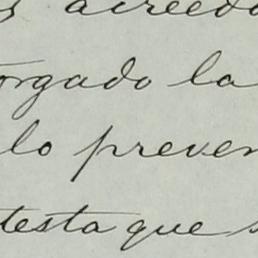 s acreedo
orgado la
lo preven
testa que s